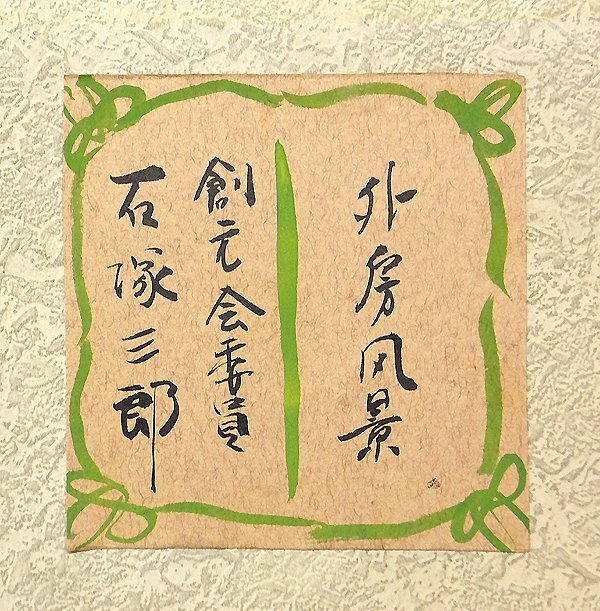 外房风景
創元会委員
石塚三郎